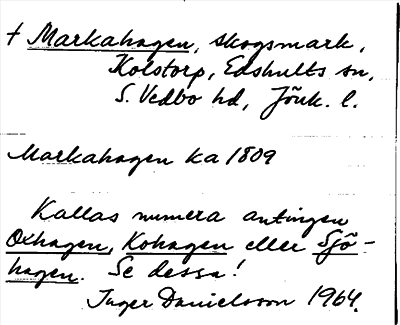 † Markahagen, skogsmark,
Kolstorp, Edshults sn,
S. Vedbo hd, Jönk. l.
Markahagen ka 1809
Kallas numera antingen
Oxhagen, Kohagen eller Sjö-
hagen. Se dessa!
Inger Danielsson 1964.